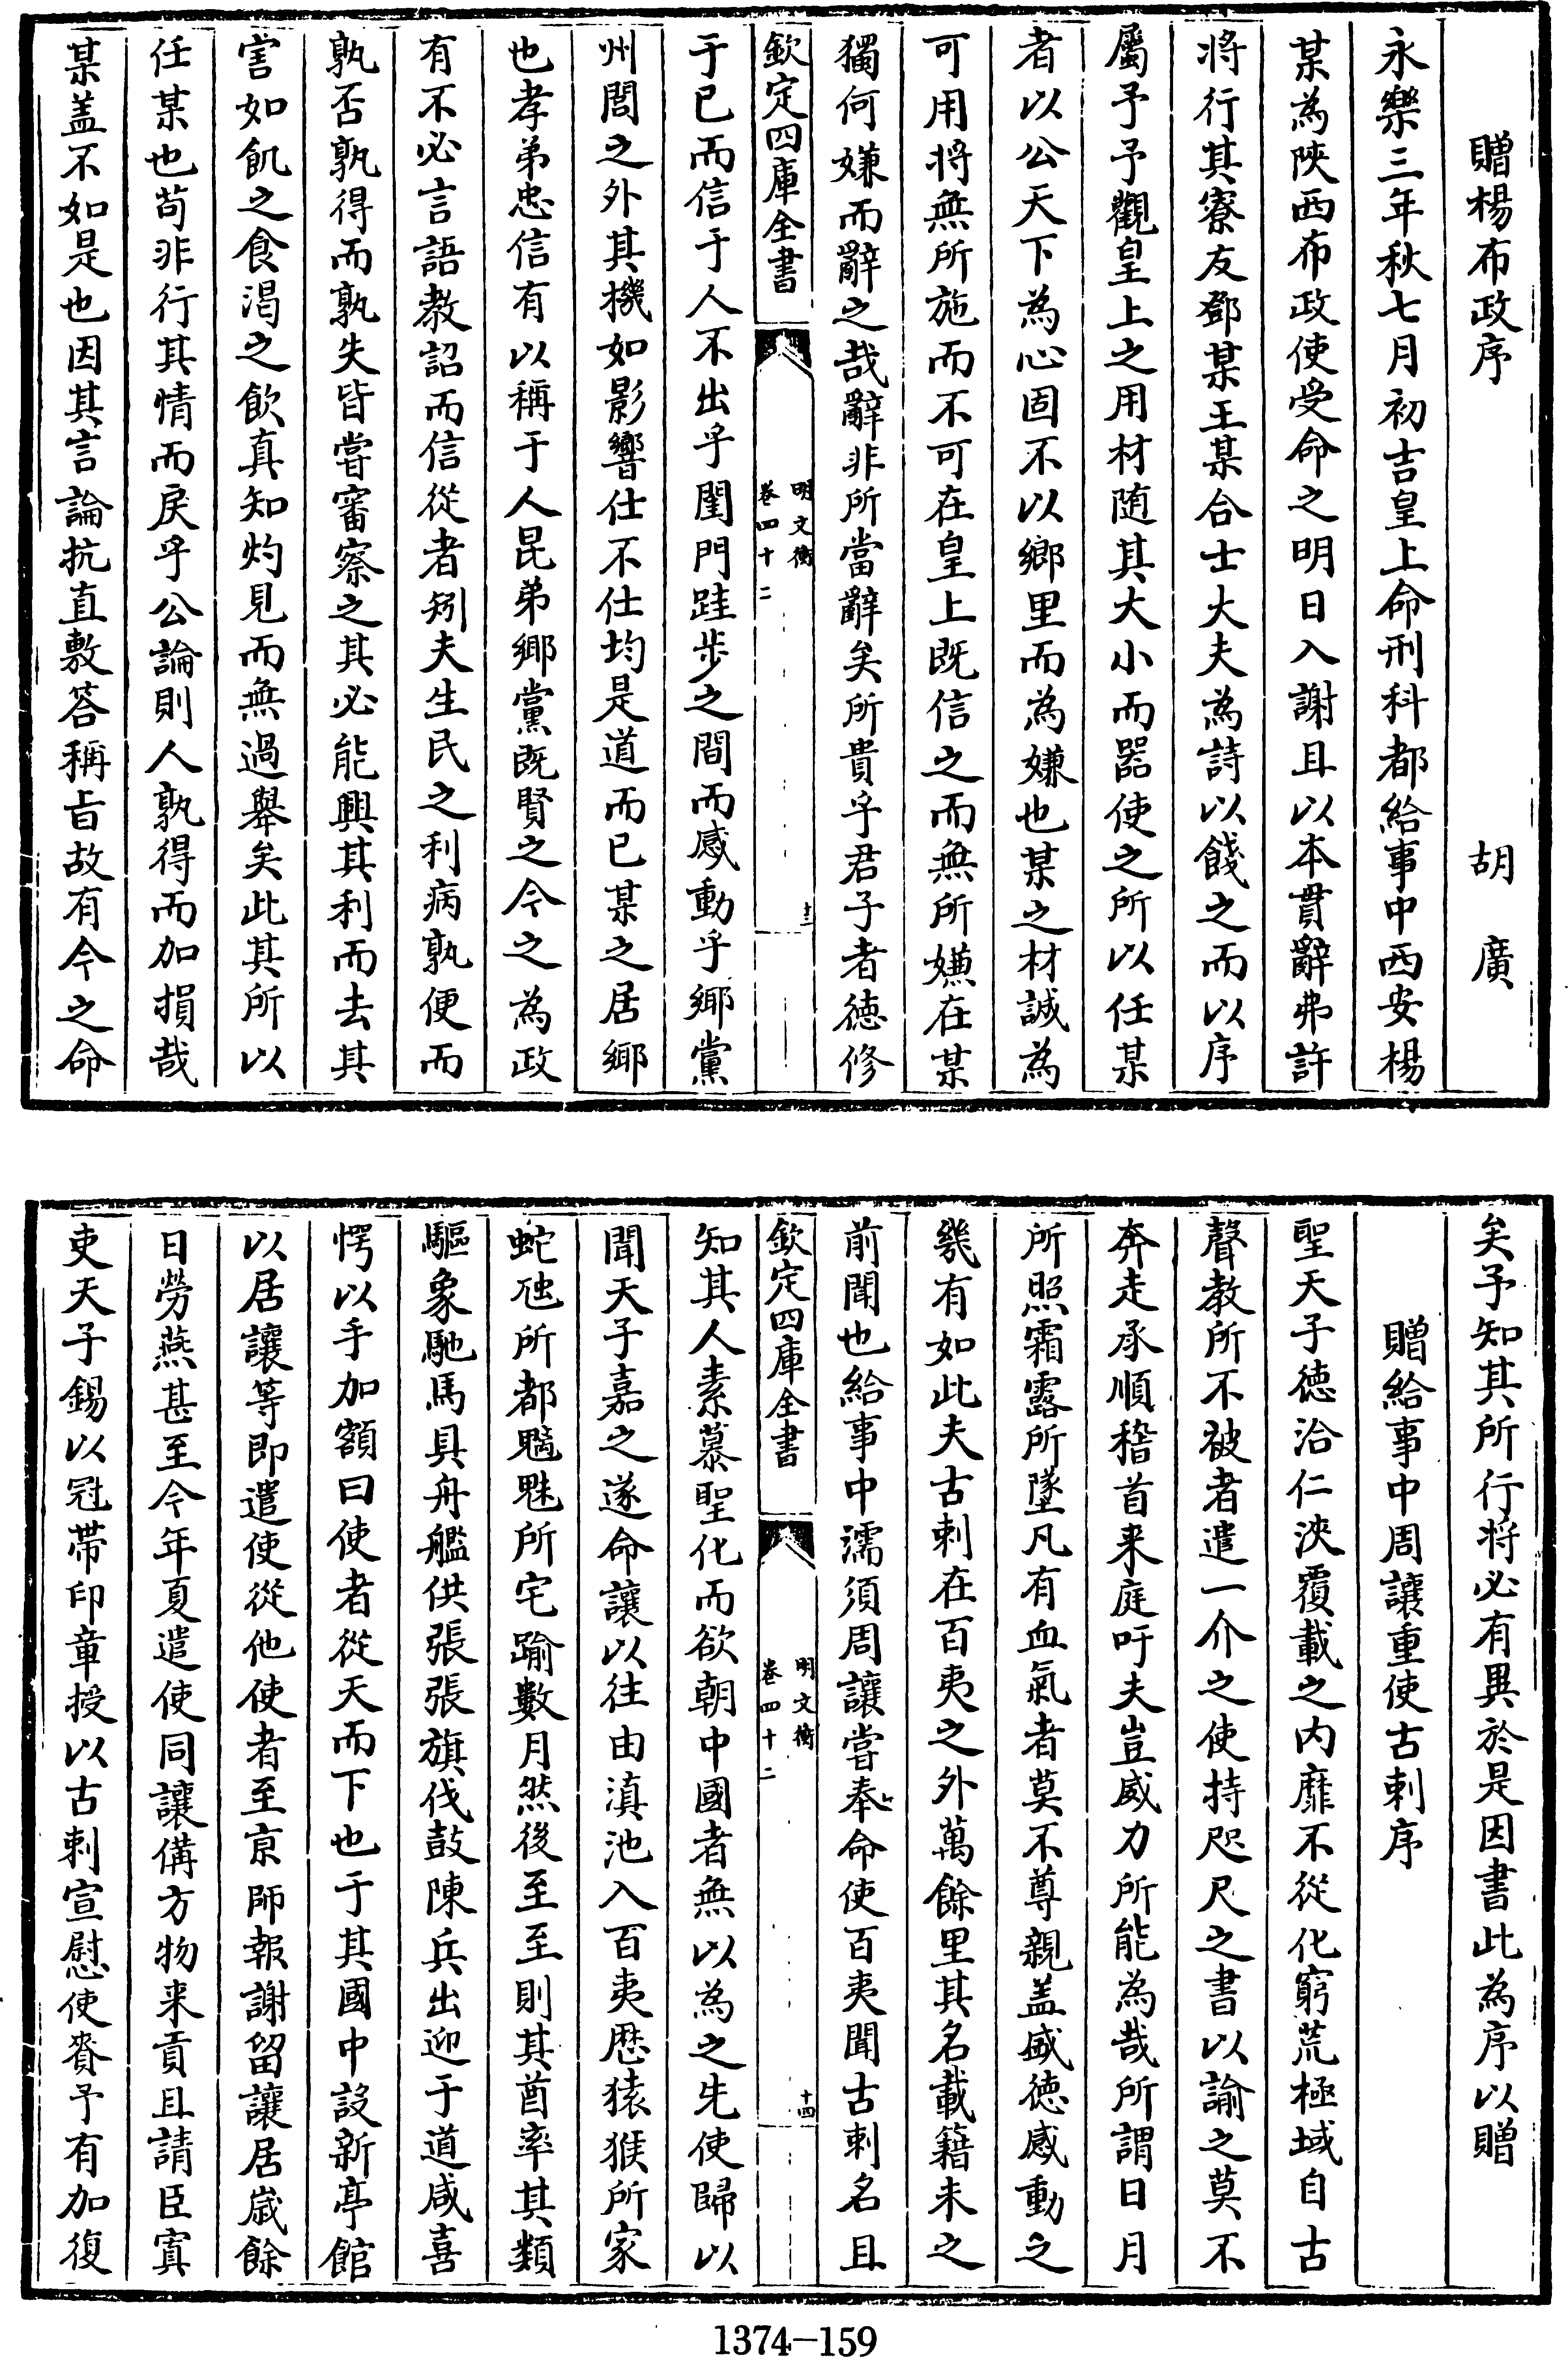 贈楊布政序　　　　　胡　廣
永樂三年秋七月初吉皇上命刑科都給事中西安楊
某為陜西布政使受命之明日入謝且以本貫辭弗許
將行其寮友鄧某王某合士大夫為詩以餞之而以序
屬予予觀皇上之用材随其大小而器使之所以任某
者以公天下為心固不以鄉里而為嫌也某之材誠為
可用将無所施而不可在皇上既信之而無所嫌在某
獨何嫌而辭之哉辭非所當辭矣所貴乎君子者德修
欽定四庫全書
明文衡
卷四十二
十三
于已而信于人不出乎閨門跬步之間而感動乎鄉黨
州閭之外其機如影響仕不仕均是道而已某之居鄉
也孝弟忠信有以稱于人昆弟鄉黨既賢之今之為政
有不必言語教詔而信從者矧夫生民之利病孰便而
孰否孰得而孰失皆甞審察之其必能興其利而去其
害如飢之食渴之飲真知灼見而無過舉矣此其所以
任某也苟非行其情而戾乎公論則人孰得而加損哉
某盖不如是也因其言論抗直敷答稱旨故有今之命
矣予知其所行将必有異於是因書此為序以贈
贈給事中周讓重使古剌序
聖天子德洽仁浹覆載之内靡不從化窮荒極域自古
聲教所不被者遣一介之使持咫尺之書以諭之莫不
奔走承順稽首来庭吁夫豈威力所能為哉所謂日月
所照霜露所墜凡有血氣者莫不尊親盖盛德感動之
幾有如此夫古剌在百夷之外萬餘里其名載籍未之
前聞也給事中濡須周讓甞奉命使百夷聞古剌名且
欽定四庫全書
明文衡
卷四十二
十四
知其人素慕聖化而欲朝中國者無以為之先使歸以
聞天子嘉之遂命讓以往由滇池入百夷歷猿猴所家
蛇虺所都魑魅所宅踰數月然後至至則其酋率其類
驅象馳馬具舟艦供張張旗伐鼓陳兵出迎于道咸喜
愕以手加額曰使者從天而下也于其國中設新亭館
以居讓等即遣使從他使者至京師報謝留讓居歲餘
日勞燕甚至今年夏遣使同讓偹方物来貢且請臣寘
吏天子錫以冠帶印章授以古剌宣慰使賚予有加復
1374-159